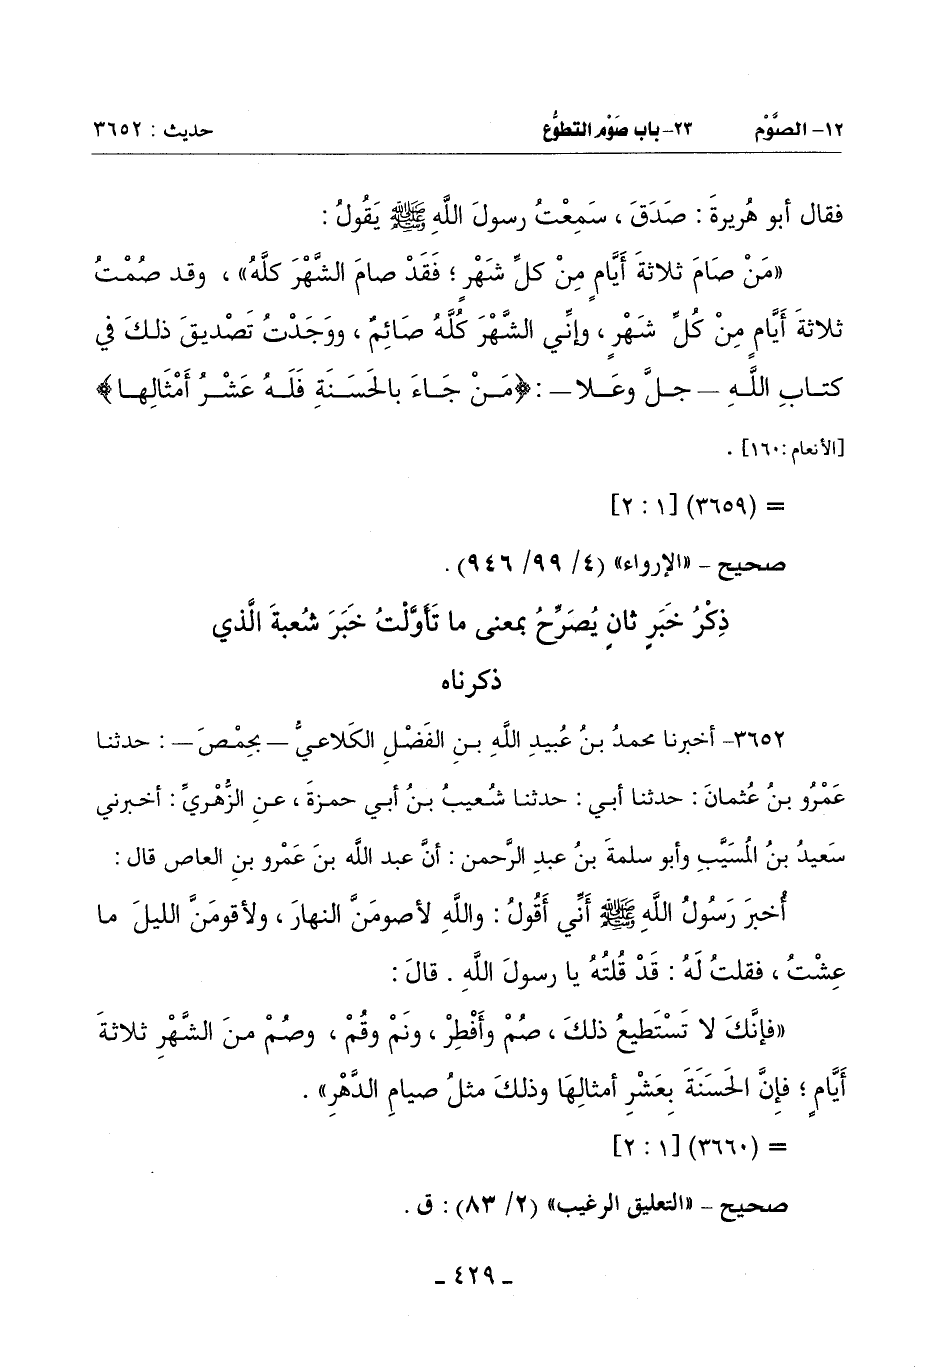 ١٢- الصَّوْم ٢٣- باب صَوْم التطوُّع حديث : ٣٦٥٢
فقال أبو هُريرةَ : صَدَقَ ، سَمِعْتُ رسولَ اللَّهِ ﷺ يَقُولُ :
«مَنْ صَامَ ثلاثةَ أَيَّامٍ مِنْ كلِّ شَهْرٍ ؛ فَقَدْ صامَ الشَّهْرَ كلَّهُ» ، وقد صُمْتُ
ثلاثةَ أَيَّامٍ مِنْ كُلِّ شَهْرٍ ، وإنِّي الشَّهْرَ كُلَّهُ صَائِمٌ ، ووَجَدْتُ تَصْديقَ ذلكَ في
كتابِ اللَّهِ –جلَّ وعَلا– : ﴿مَنْ جَاءَ بالحَسَنَةِ فَلَهُ عَشْرُ أَمْثَالِها﴾
[الأنعام :١٦٠] .
= (٣٦٥٩) [١ : ٢]
صحيح - «الإرواء» (٤/ ٩٩/ ٩٤٦) .
ذِكْرُ خَبَرٍ ثانٍ يُصَرِّحُ بمعنى ما تَأَوَّلْتُ خَبَرَ شُعبةَ الَّذي
ذكرناه
٣٦٥٢- أخبرنا محمدُ بنُ عُبيدِ اللَّهِ بنِ الفَضْلِ الكَلاعيُّ –بحِمْصَ– : حدثنا
عَمْرُو بنُ عُثمانَ : حدثنا أبي : حدثنا شُعيبُ بنُ أبي حمزةَ ، عنِ الزُّهْريِّ : أخبرني
سَعيدُ بنُ المُسَيَّبِ وأبو سلمةَ بنُ عبدِ الرَّحمن : أنَّ عبد اللَّه بنَ عَمْرِو بنِ العاص قال :
أُخبِرَ رَسُولُ اللَّهِ ﷺ أَنِّي أَقُولُ : واللَّهِ لأصومَنَّ النهارَ ، ولأقومَنَّ الليلَ ما
عِشْتُ ، فقلتُ لَهُ : قَدْ قُلتُهُ يا رسولَ اللَّهِ . قالَ :
«فإنَّكَ لا تَسْتَطيعُ ذلكَ ، صُمْ وأَفْطِرْ ، ونَمْ وقُمْ ، وصُمْ منَ الشَّهْرِ ثلاثةَ
أَيَّامٍ ؛ فإنَّ الحَسَنَةَ بِعَشْرِ أمثالِهَا وذلكَ مثلُ صيامِ الدَّهْرِ» .
= (٣٦٦٠) [١ : ٢]
صحيح - «التعليق الرغيب» (٢/ ٨٣) : ق .
- ٤٢٩ -